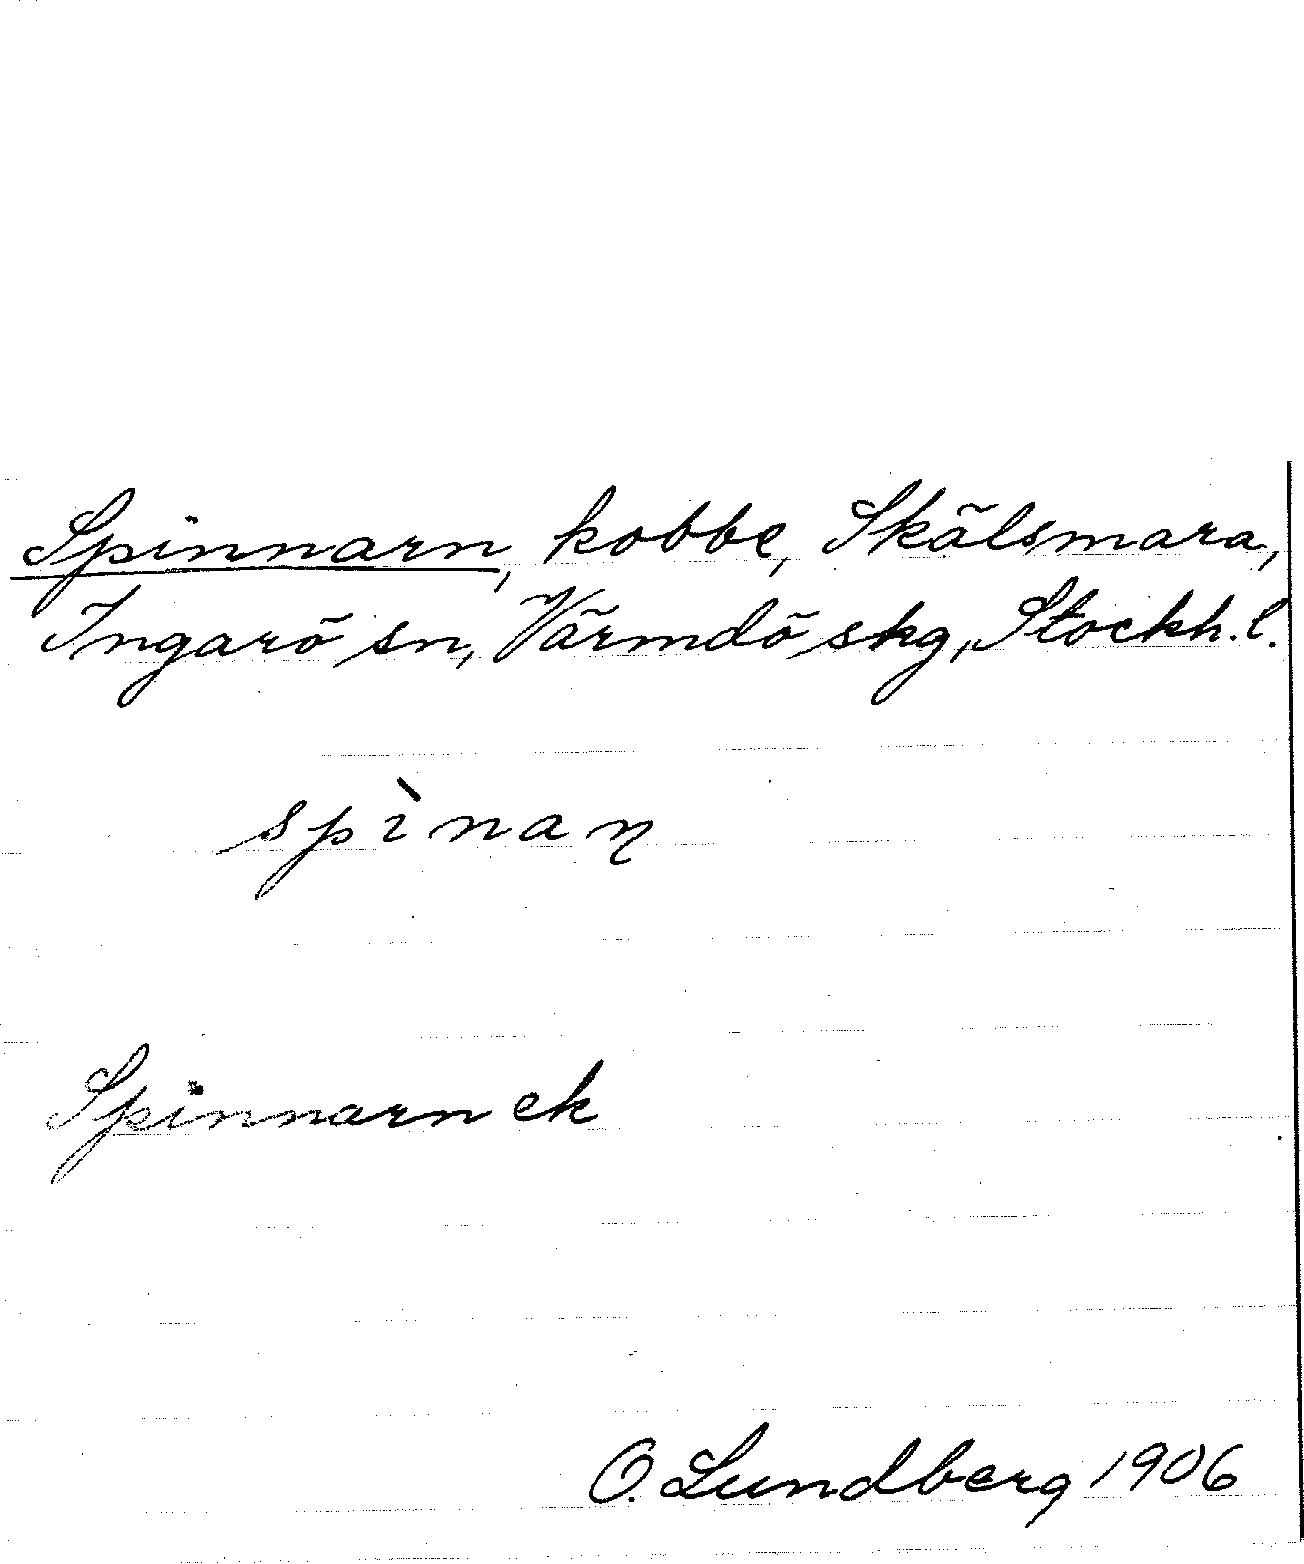 Spinnarn, kobbe, Skälsmara,
Ingarö sn, Värmdö skg, Stockh. l.
spìnaɳ
Spinnarn ek
O. Lundberg 1906